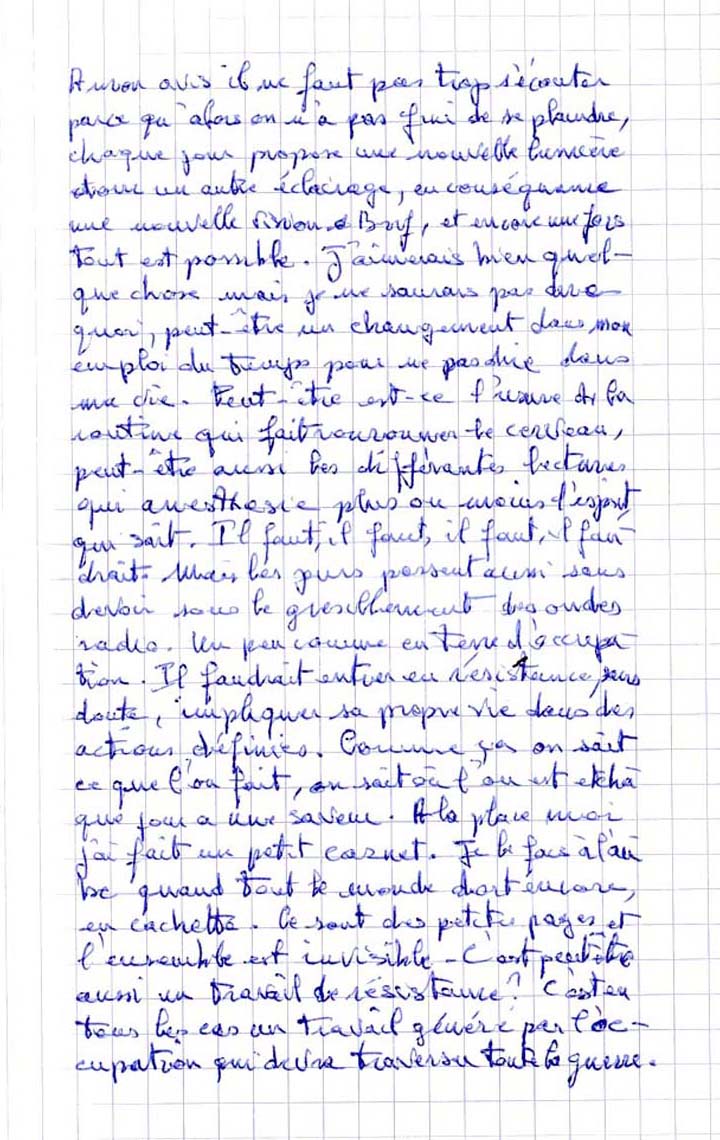 A mon avis il ne faut pas trop s'écouter
parce qu'alors on n'a pas fini de se plaindre,
chaque jour propose une nouvelle lumière
donc un autre éclairage, en conséquence
une nouvelle vision. Bref, et encore une fois
tout est possible. J'aimerais bien quel-
que chose mais je ne saurais pas dire
quoi, peut-être un changement dans mon
emploi du temps pour ne pas dire dans
ma vie. Peut-être est-ce l'usure de la
routine qui fait ronronner le cerveau,
peut-être aussi les différentes lectures
qui anesthésie plus ou moins l'esprit
qui sait. Il faut, il faut, il faut, il fau-
drait. Mais les jours passent aussi sans
devoir sous le grésillement des ondes
radio. Un peu comme en terre d'occupa-
tion. Il faudrait entrer en résistance, sans
doute, impliquer sa propre vie dans des
actions définies. Comme ça on sait
ce que l'on fait, on sait où l'on est et cha
que jour a une saveur. A la place moi
j'ai fait un petit carnet. Je le fais à l'au
be quand tout le monde dort encore,
en cachette. Ce sont des petites pages et
l'ensemble est invisible - C'est peut-être
aussi un travail de résistance? C'est en
tous les cas un travail généré par l'oc-
cupation qui devra traverser toute la guerre.